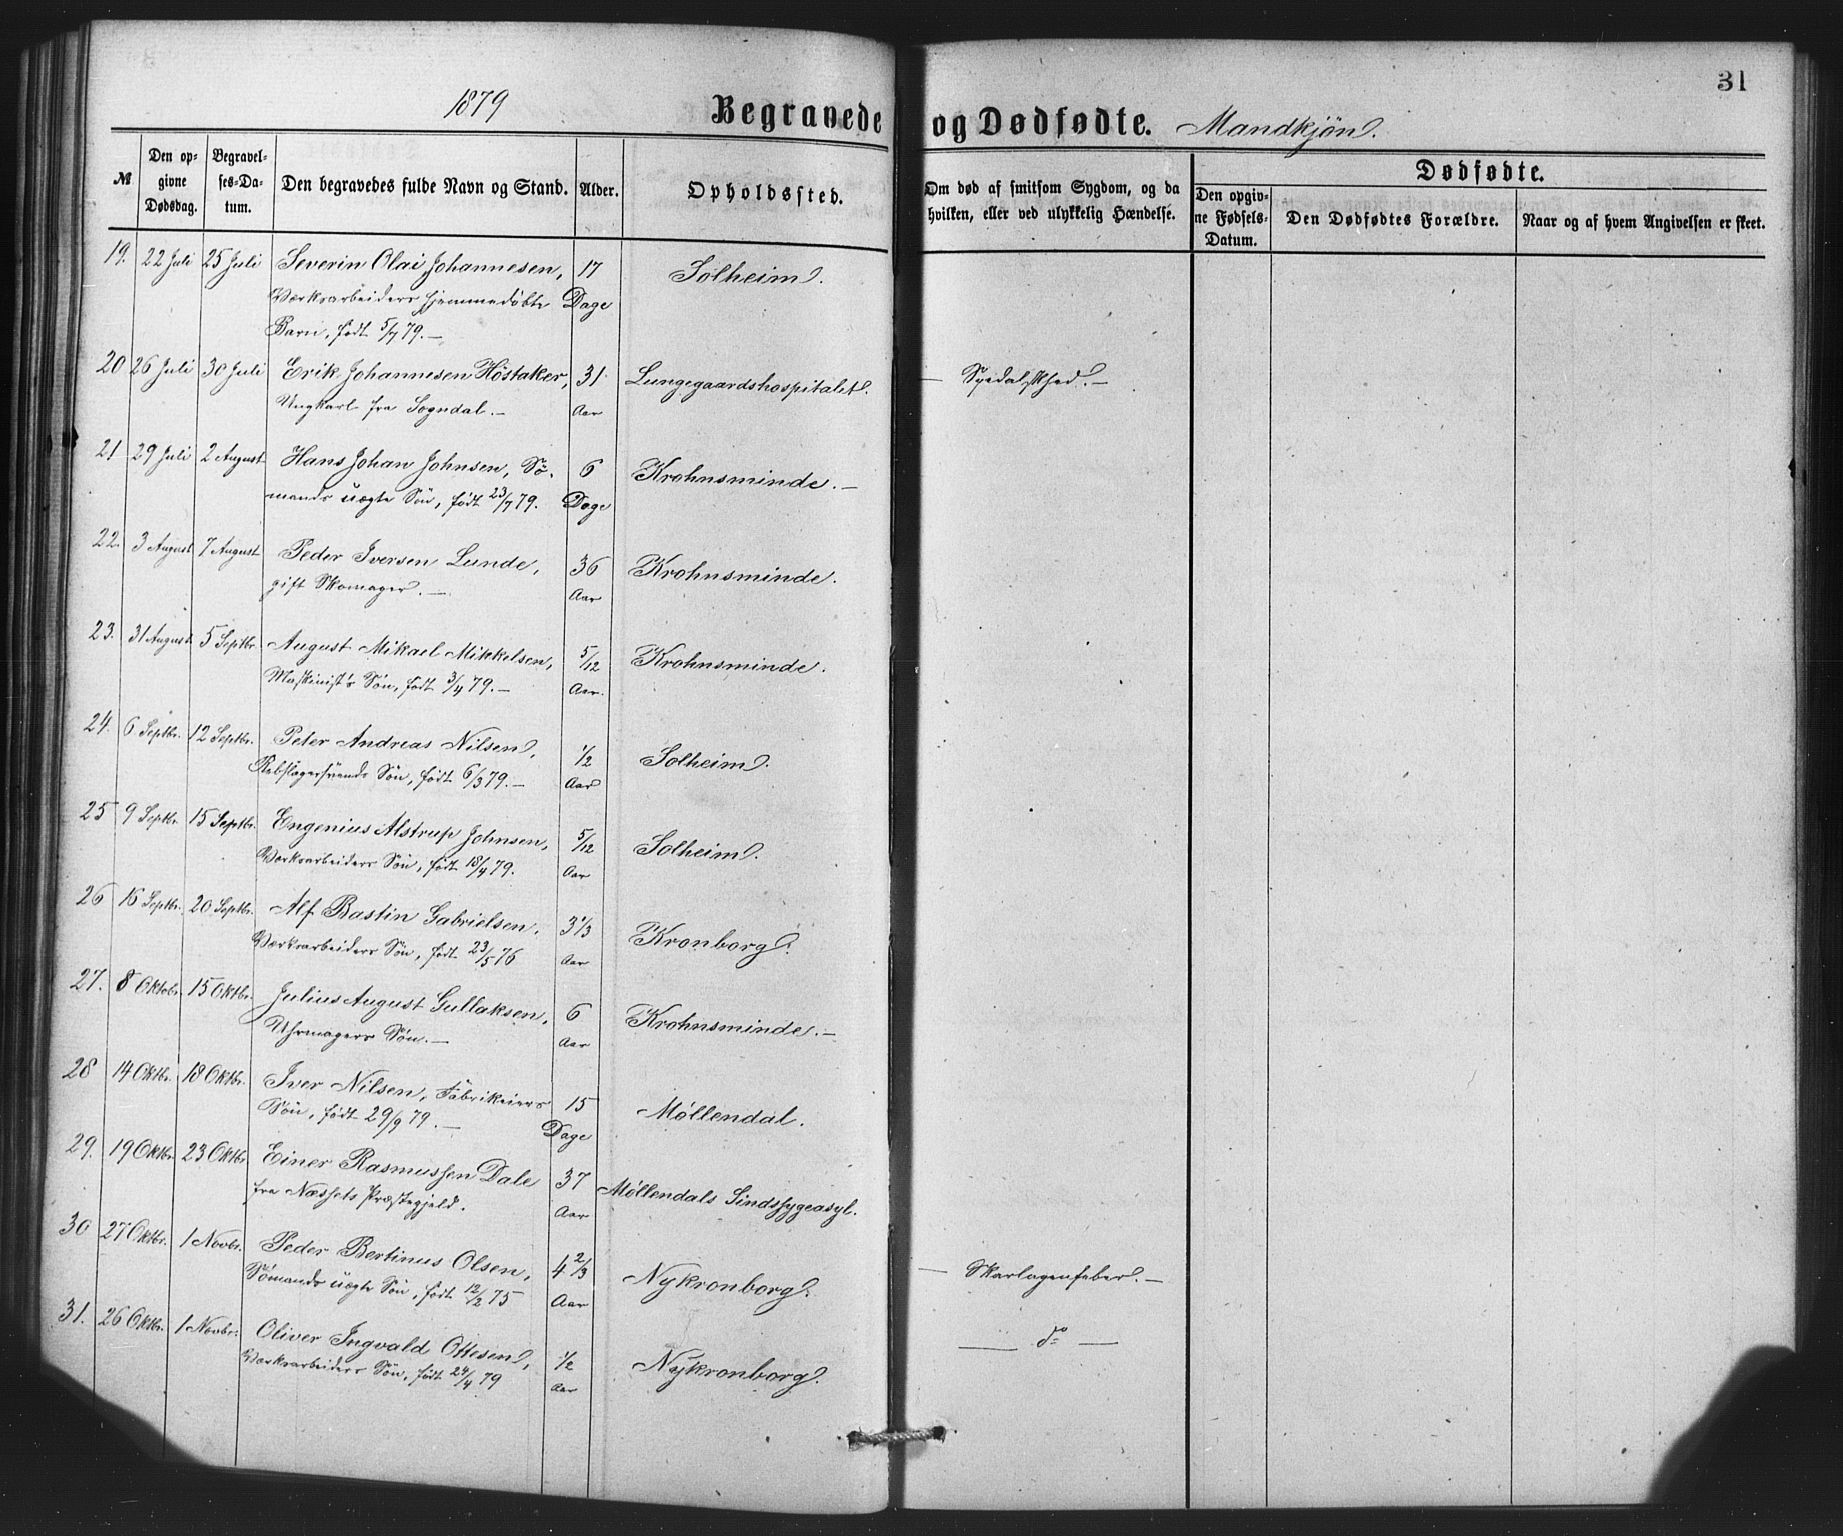 31
1879 Begravede og Dødfødte. Mandkjøn.
№ Den opgivne Dødsdag. Begravelses-Datum. Den begravedes fulde Navn og Stand. Alder. Opholdssted. Om død af smitsom Sygdom, og da hvilken, eller ved ulykkelig Hændelse. Dødfødte. Den opgivne Fødsels-Datum. Den Dødfødtes Forældre. Naar og af hvem Angivelsen er skeet.
19. 22 Juli 25 Juli Severin Olai Johannesen, 17 Solheim.
Værksarbeiders hjemmedøbte Dage
Barn, født 5/7 79. —
20 26 Juli 30 Juli Erik Johannesen Høstaker, 31 Lungegaardshospitalet. — Spedalskhed. —
Ungkarl fra Sogndal. — Aar
21 29 Juli 2 August Hans Johan Johnsen, Sø- 6 Krohnsminde. —
mands uægte Søn, født 23/7 79. Dage
22. 3 August 7 August Peder Iversen Lunde, 36 Krohnsminde.
gift Skomager. — Aar
23. 31 August 5 Septbr. August Mikael Mikkelsen, 5/12 Krohnsminde.
Maskinist's Søn, født 3/4 79. — Aar.
24. 6 Septbr. 12 Septbr. Peter Andreas Nilsen, 1/2 Solheim.
Rebslagersvends Søn, født 6/3 79. — Aar
25 9 Septbr. 15 Septbr. Engenius Alstrup Johnsen, 5/12 Solheim.
Værksarbeiders Søn, født 18/4 79. Aar
26 16 Septbr. 20 Septbr. Alf Bastin Gabrielsen, 3 1/3 Kronborg.
Værksarbeiders Søn, født 23/5 76 Aar
27. 8 Oktobr. 15 Oktbr. Julius August Gullaksen, 6 Krohnsminde. —
Uhrmagers Søn. — Aar
28 14 Oktbr. 18 Oktbr. Iver Nilsen, Fabrikeiers 15 Møllendal.
Søn, født 29/9 79. — Dage
29. 19 Oktbr. 23 Oktbr. Einer Rasmussen Dale 37 Møllendals Sindssygeasyl.
fra Næssets Præstegjeld. Aar
30 27 Oktbr. 1 Novbr. Peder Bertinus Olsen, 4 2/3 Nykronborg. — Skarlagenfeber. —
Sømands uægte Søn, født 12/2 75 Aar
31. 26 Oktbr. 1 Novbr. Oliver Ingvald Ottesen, 1/2 Nykronborg. — do —
Værksarbeiders Søn, født 24/4 79 Aar